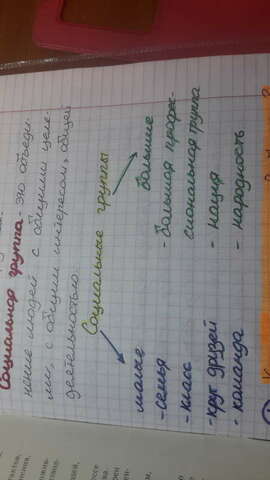 Социальная группа - это объеди-
нение людей с общими целя-
ми, с общим интересом, общей
деятельностью.
Социальные группы
малые
- семья
- класс
- круг друзей
- команда
большие
- большая профес-
сиональная группа
- нация
- народность